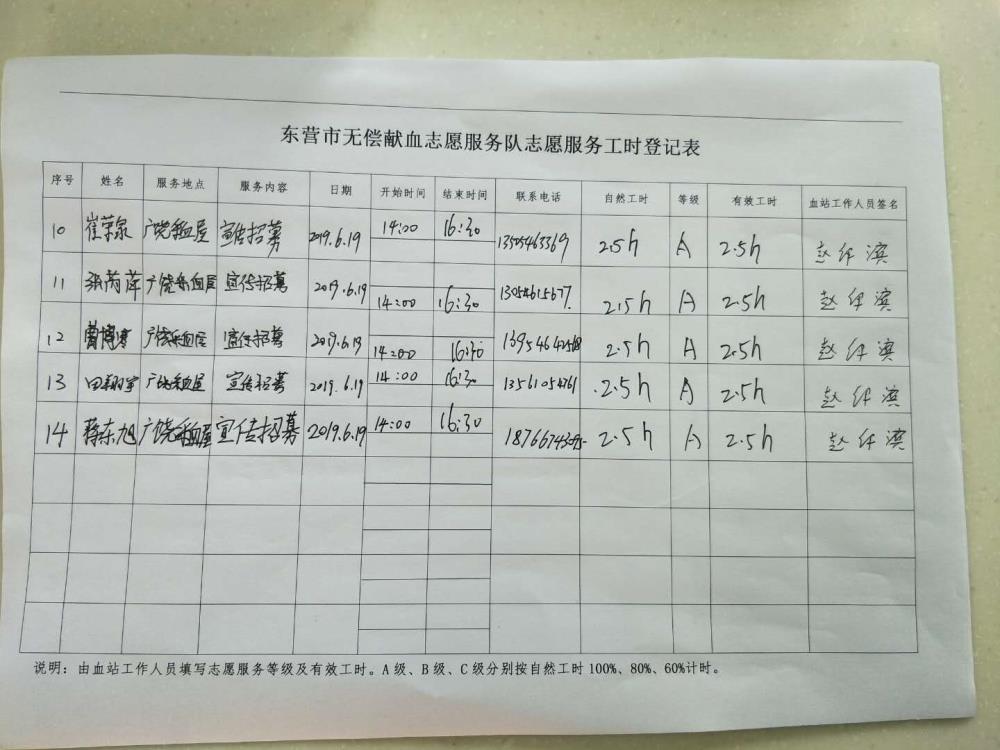 东营市无偿献血志愿服务队志愿服务工时登记表
序号 姓名 服务地点 服务内容 日期 开始时间 结束时间 联系电话 自然工时 等级 有效工时 血站工作人员签名
10 崔荣泉 广饶献血屋 宣传招募 2019.6.19 14:00 16:30 13505463369 2.5h A 2.5h 赵
11 张芮萍 广饶献血屋 宣传招募 2019.6.19 14:00 16:30 13054615677 2.5h A 2.5h 赵
12 曹博寒 广饶献血屋 宣传招募 2019.6.19 14:00 16:30 2.5h A 2.5h 赵
13 田翔宇 广饶献血屋 宣传招募 2019.6.19 14:00 16:30 13561054761 2.5h A 2.5h 赵
14 蒋东旭 广饶献血屋 宣传招募 2019.6.19 14:00 16:30 2.5h A 2.5h 赵
说明：由血站工作人员填写志愿服务等级及有效工时。A级、B级、C级分别按自然工时100%、80%、60%计时。